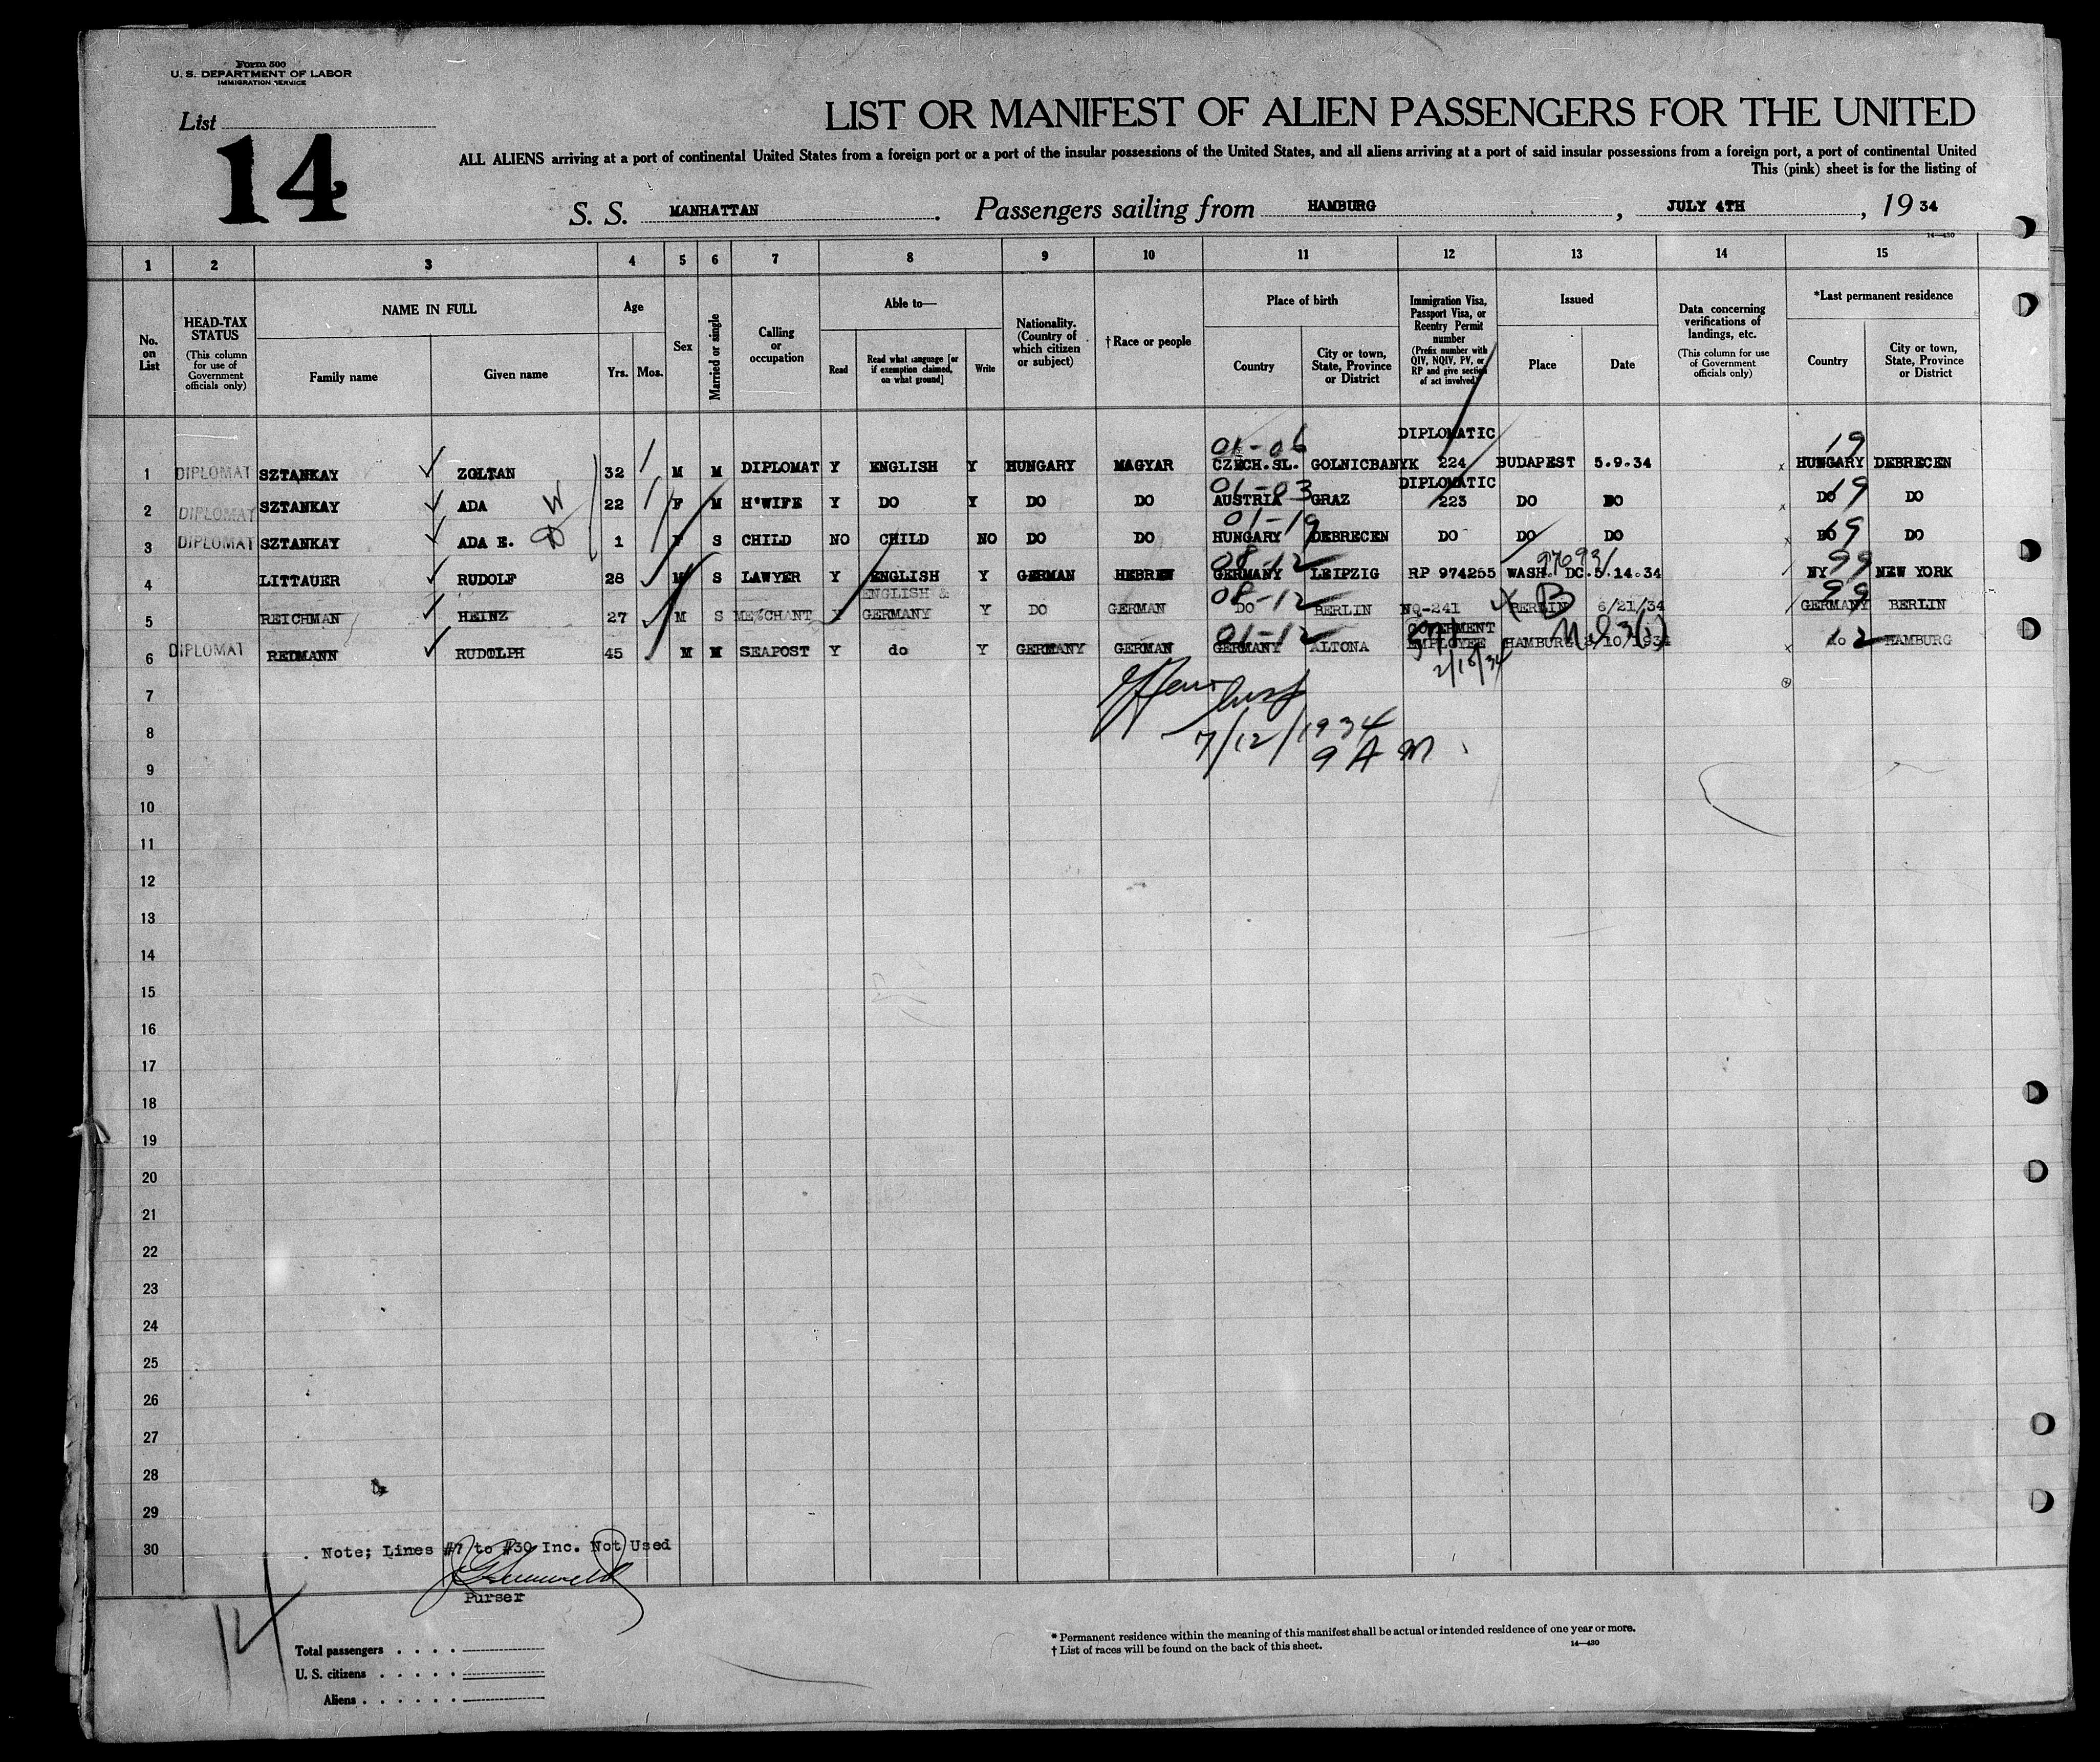 Form 500
U. S. DEPARTMENT OF LABOR
IMMIGRATION SERVICE
List
14
LIST OR MANIFEST OF ALIEN PASSENGERS FOR THE UNITED
ALL ALIENS arriving at a port of continental United States from a foreign port or a port of the insular possessions of the United States, and all aliens arriving at a port of said insular possessions from a foreign port, a port of continental United
This (pink) sheet is for the listing of
S. S. MANHATTAN. Passengers sailing from HAMBURG, JULY 4TH, 19 34
14—430
1 2 3 4 5 6 7 8 9 10 11 12 13 14 15
No. on List
HEAD-TAX STATUS
(This column for use of Government officials only)
NAME IN FULL
Family name Given name
Age
Yrs. Mos.
Sex
Married or single
Calling or occupation
Able to—
Read
Read what language [or if exemption claimed, on what ground]
Write
Nationality. (Country of which citizen or subject)
† Race or people
Place of birth
Country
City or town, State, Province or District
Immigration Visa, Passport Visa, or Reentry Permit number
(Prefix number with QIV, NQIV, PV, or RP and give section of act involved)
Issued
Place Date
Data concerning verifications of landings, etc.
(This column for use of Government officials only)
*Last permanent residence
Country
City or town, State, Province or District
01-06 DIPLOMATIC 19
1 DIPLOMAT SZTANKAY ZOLTAN 32 M M DIPLOMAT Y ENGLISH Y HUNGARY MAGYAR CZECH.SL. GOLNICBANYK 224 BUDAPEST 5.9.34 HUNGARY DEBRECEN
01-03 DIPLOMATIC 19
2 DIPLOMAT SZTANKAY ADA W 22 F M H'WIFE Y DO Y DO DO AUSTRIA GRAZ 223 DO DO DO DO
01-19 19
3 DIPLOMAT SZTANKAY ADA E. D 1 F S CHILD NO CHILD NO DO DO HUNGARY DEBRECEN DO DO DO DO DO
08-12 99
4 LITTAUER RUDOLF 28 M S LAWYER Y ENGLISH Y GERMAN HEBREW GERMANY LEIPZIG RP 974255 WASH. DC. 5.14.34 NY NEW YORK
08-12 99
5 REICHMAN HEINZ 27 M S MERCHANT Y ENGLISH & GERMANY Y DO GERMAN DO BERLIN NQ-241 BERLIN 6/21/34 GERMANY BERLIN
B
01-12 GOVERMENT 12
6 DIPLOMAT REDMANN RUDOLPH 45 M M SEAPOST Y do Y GERMANY GERMAN GERMANY ALTONA EMPLOYEE HAMBURG 2/10/1934 do HAMBURG
2/10/34
7
7/12/1934
8
9 A M
9
10
11
12
13
14
15
16
17
18
19
20
21
22
23
24
25
26
27
28
29
30
Note; Lines #7 to #30 Inc. Not Used
Purser
14
Total passengers
U. S. citizens
Aliens
* Permanent residence within the meaning of this manifest shall be actual or intended residence of one year or more.
† List of races will be found on the back of this sheet.
14—430